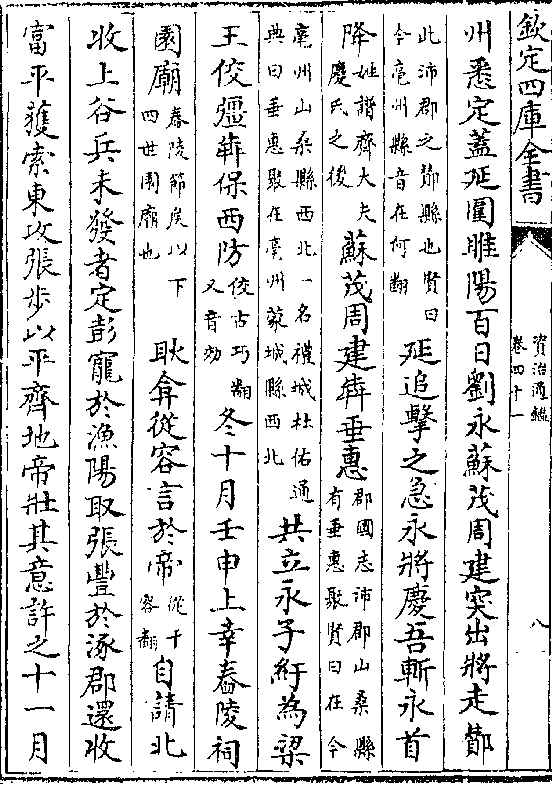 欽定四庫全書
資治通鑑
卷四十一
八
州悉定蓋延圍睢陽百日劉永蘇茂周建突出將走酇
此沛郡之酇縣也賢曰
今亳州縣音在何翻
延追擊之急永將慶吾斬永首
降
姓譜齊大夫
慶氏之後
蘇茂周建犇垂惠
郡國志沛郡山桑縣
有垂惠聚賢曰在今
亳州山桑縣西北一名禮城杜佑通
典曰垂惠聚在亳州蒙城縣西北
共立永子紆為梁
王佼彊犇保西防
佼古巧翻
又音効
冬十月壬申上幸舂陵祠
園廟
舂陵節侯以下
四世園廟也
耿弇從容言於帝
從千
容翻
自請北
收上谷兵未發者定彭寵於漁陽取張豐於涿郡還收
富平獲索東攻張步以平齊地帝壯其意許之十一月